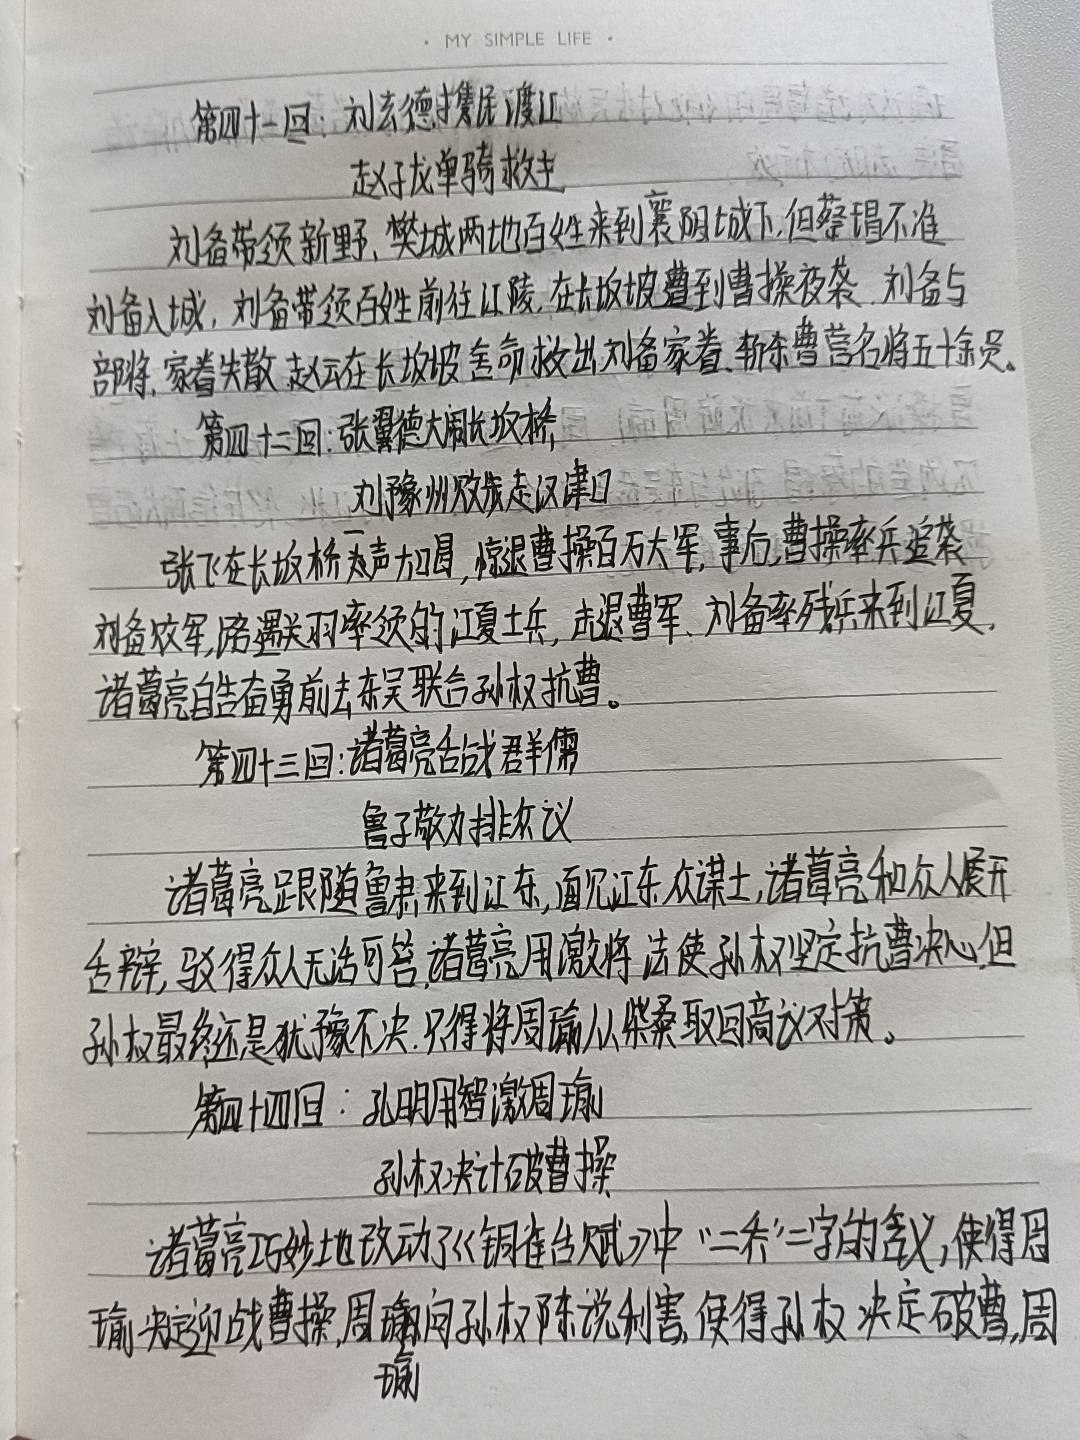 · MY SIMPLE LIFE ·
第四十一回：刘玄德携民渡江
赵子龙单骑救主
刘备带领新野、樊城两地百姓来到襄阳城下,但蔡瑁不准
刘备入城，刘备带领百姓前往江陵,在长坂坡遭到曹操夜袭.刘备与
部将、家眷失散,赵云在长坂坡舍命救出刘备家眷、斩杀曹营名将五十余员。
第四十二回：张翼德大闹长坂桥
刘豫州败走汉津口
张飞在长坂桥大喝,惊退曹操百万大军,事后,曹操率兵追袭
刘备败军,路遇关羽率领的江夏士兵，击退曹军、刘备率残兵来到江夏.
诸葛亮自告奋勇前去东吴联合孙权抗曹。
第四十三回：诸葛亮舌战群儒
鲁子敬力排众议
诸葛亮跟随鲁肃来到江东,面见江东众谋士,诸葛亮和众人展开
舌辩,驳得众人无话可答,诸葛亮用激将法使孙权坚定抗曹决心,但
孙权最终还是犹豫不决.只得将周瑜从柴桑取回商议对策。
第四十四回：孔明用智激周瑜
孙权决计破曹操
诸葛亮巧妙地改动了《铜雀台赋》中“二乔”二字的含义,使得周
瑜决定迎战曹操,周瑜向孙权陈说利害,使得孙权决定破曹,周
瑜